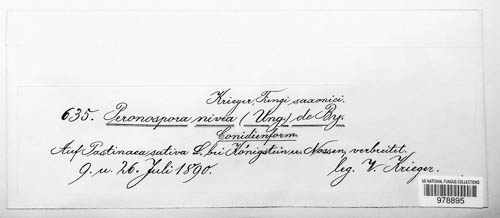 Krieger, Fungi saxonici.
635. Peronospora nivea (Ung.) de Bry.
Conidienform.
Auf Pastinaca sativa L. bei Königstein u. Nossen, verbreitet.
9. u. 26. Juli 1890. leg. W. Krieger.
US NATIONAL FUNGUS COLLECTIONS
978895